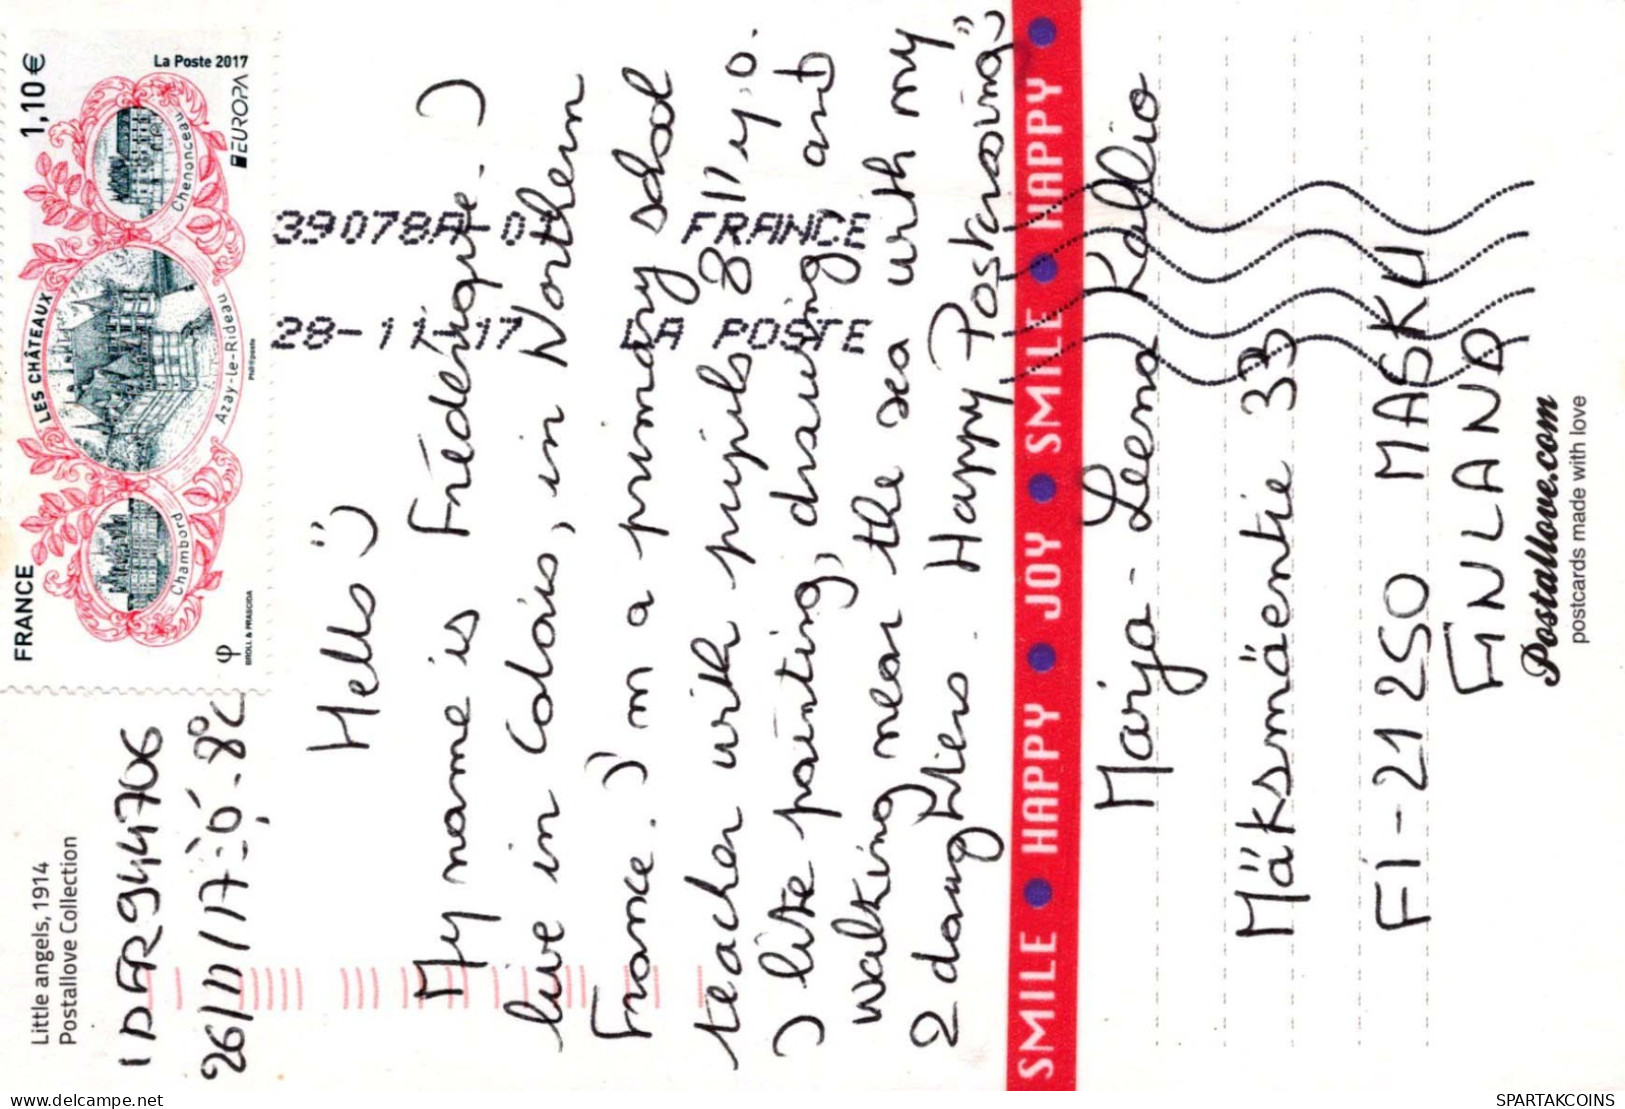 Little angels, 1914
Postallove Collection
ID FR 944706
26/11/17
8°C
FRANCE
LES CHÂTEAUX
1,10 €
Chambord
Azay-le-Rideau
Chenonceau
BROLL & PRASCIDA
PHIL@poste
EUROPA
La Poste 2017
39078A-01 FRANCE
28-11-17 LA POSTE
Hello :)
My name is Frédérique. I
live in Calais, in Northern
France. I'm a primary school
teacher with pupils 8-11 y.o.
I like painting, drawing, and
walking near the sea with my
2 daughters. Happy Postcrossing
SMILE • HAPPY • JOY • SMILE • HAPPY
Marja-Leena Kallio
Mäksmäentie 33
FI-21250 MASKU
FINLAND
Postallove.com
postcards made with love
SPARTAKCOINS